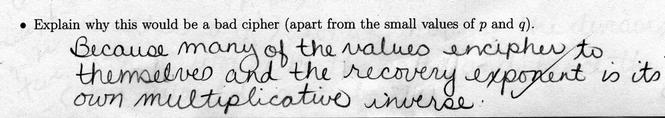 • Explain why this would be a bad cipher (apart from the small values of p and q).
Because many of the values encipher to
themselves and the recovery exponent is its
own multiplicative inverse.